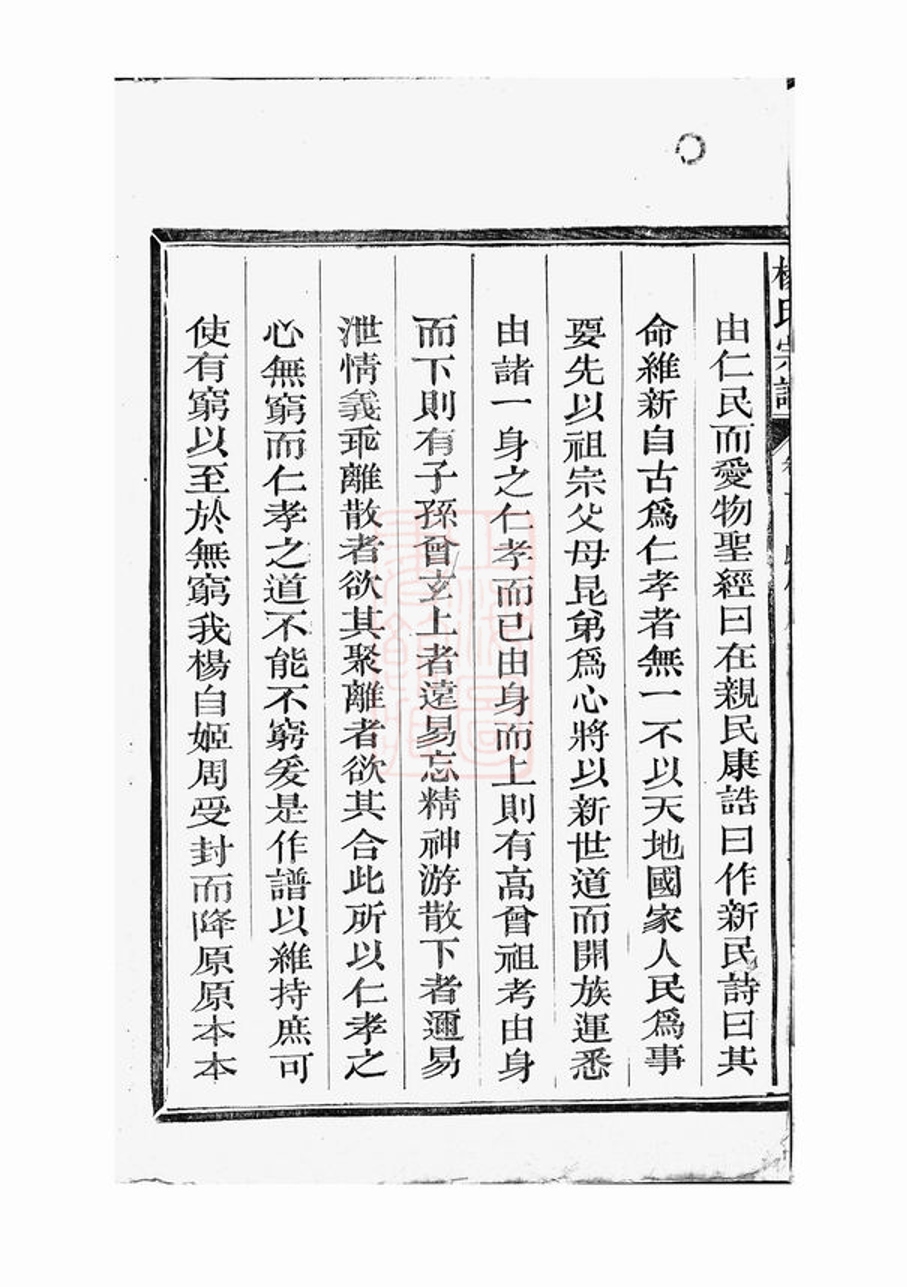 楊氏宗譜
由仁民而愛物聖經曰在親民康誥曰作新民詩曰其
命維新自古爲仁孝者無一不以天地國家人民爲事
要先以祖宗父母昆弟爲心將以新世道而開族運悉
由諸一身之仁孝而已由身而上則有高曾祖考由身
而下則有子孫曾玄上者遠易忘精神游散下者邇易
泄情義乖離散者欲其聚離者欲其合此所以仁孝之
心無窮而仁孝之道不能不窮爰是作譜以維持庶可
使有窮以至於無窮我楊自姬周受封而降原原本本